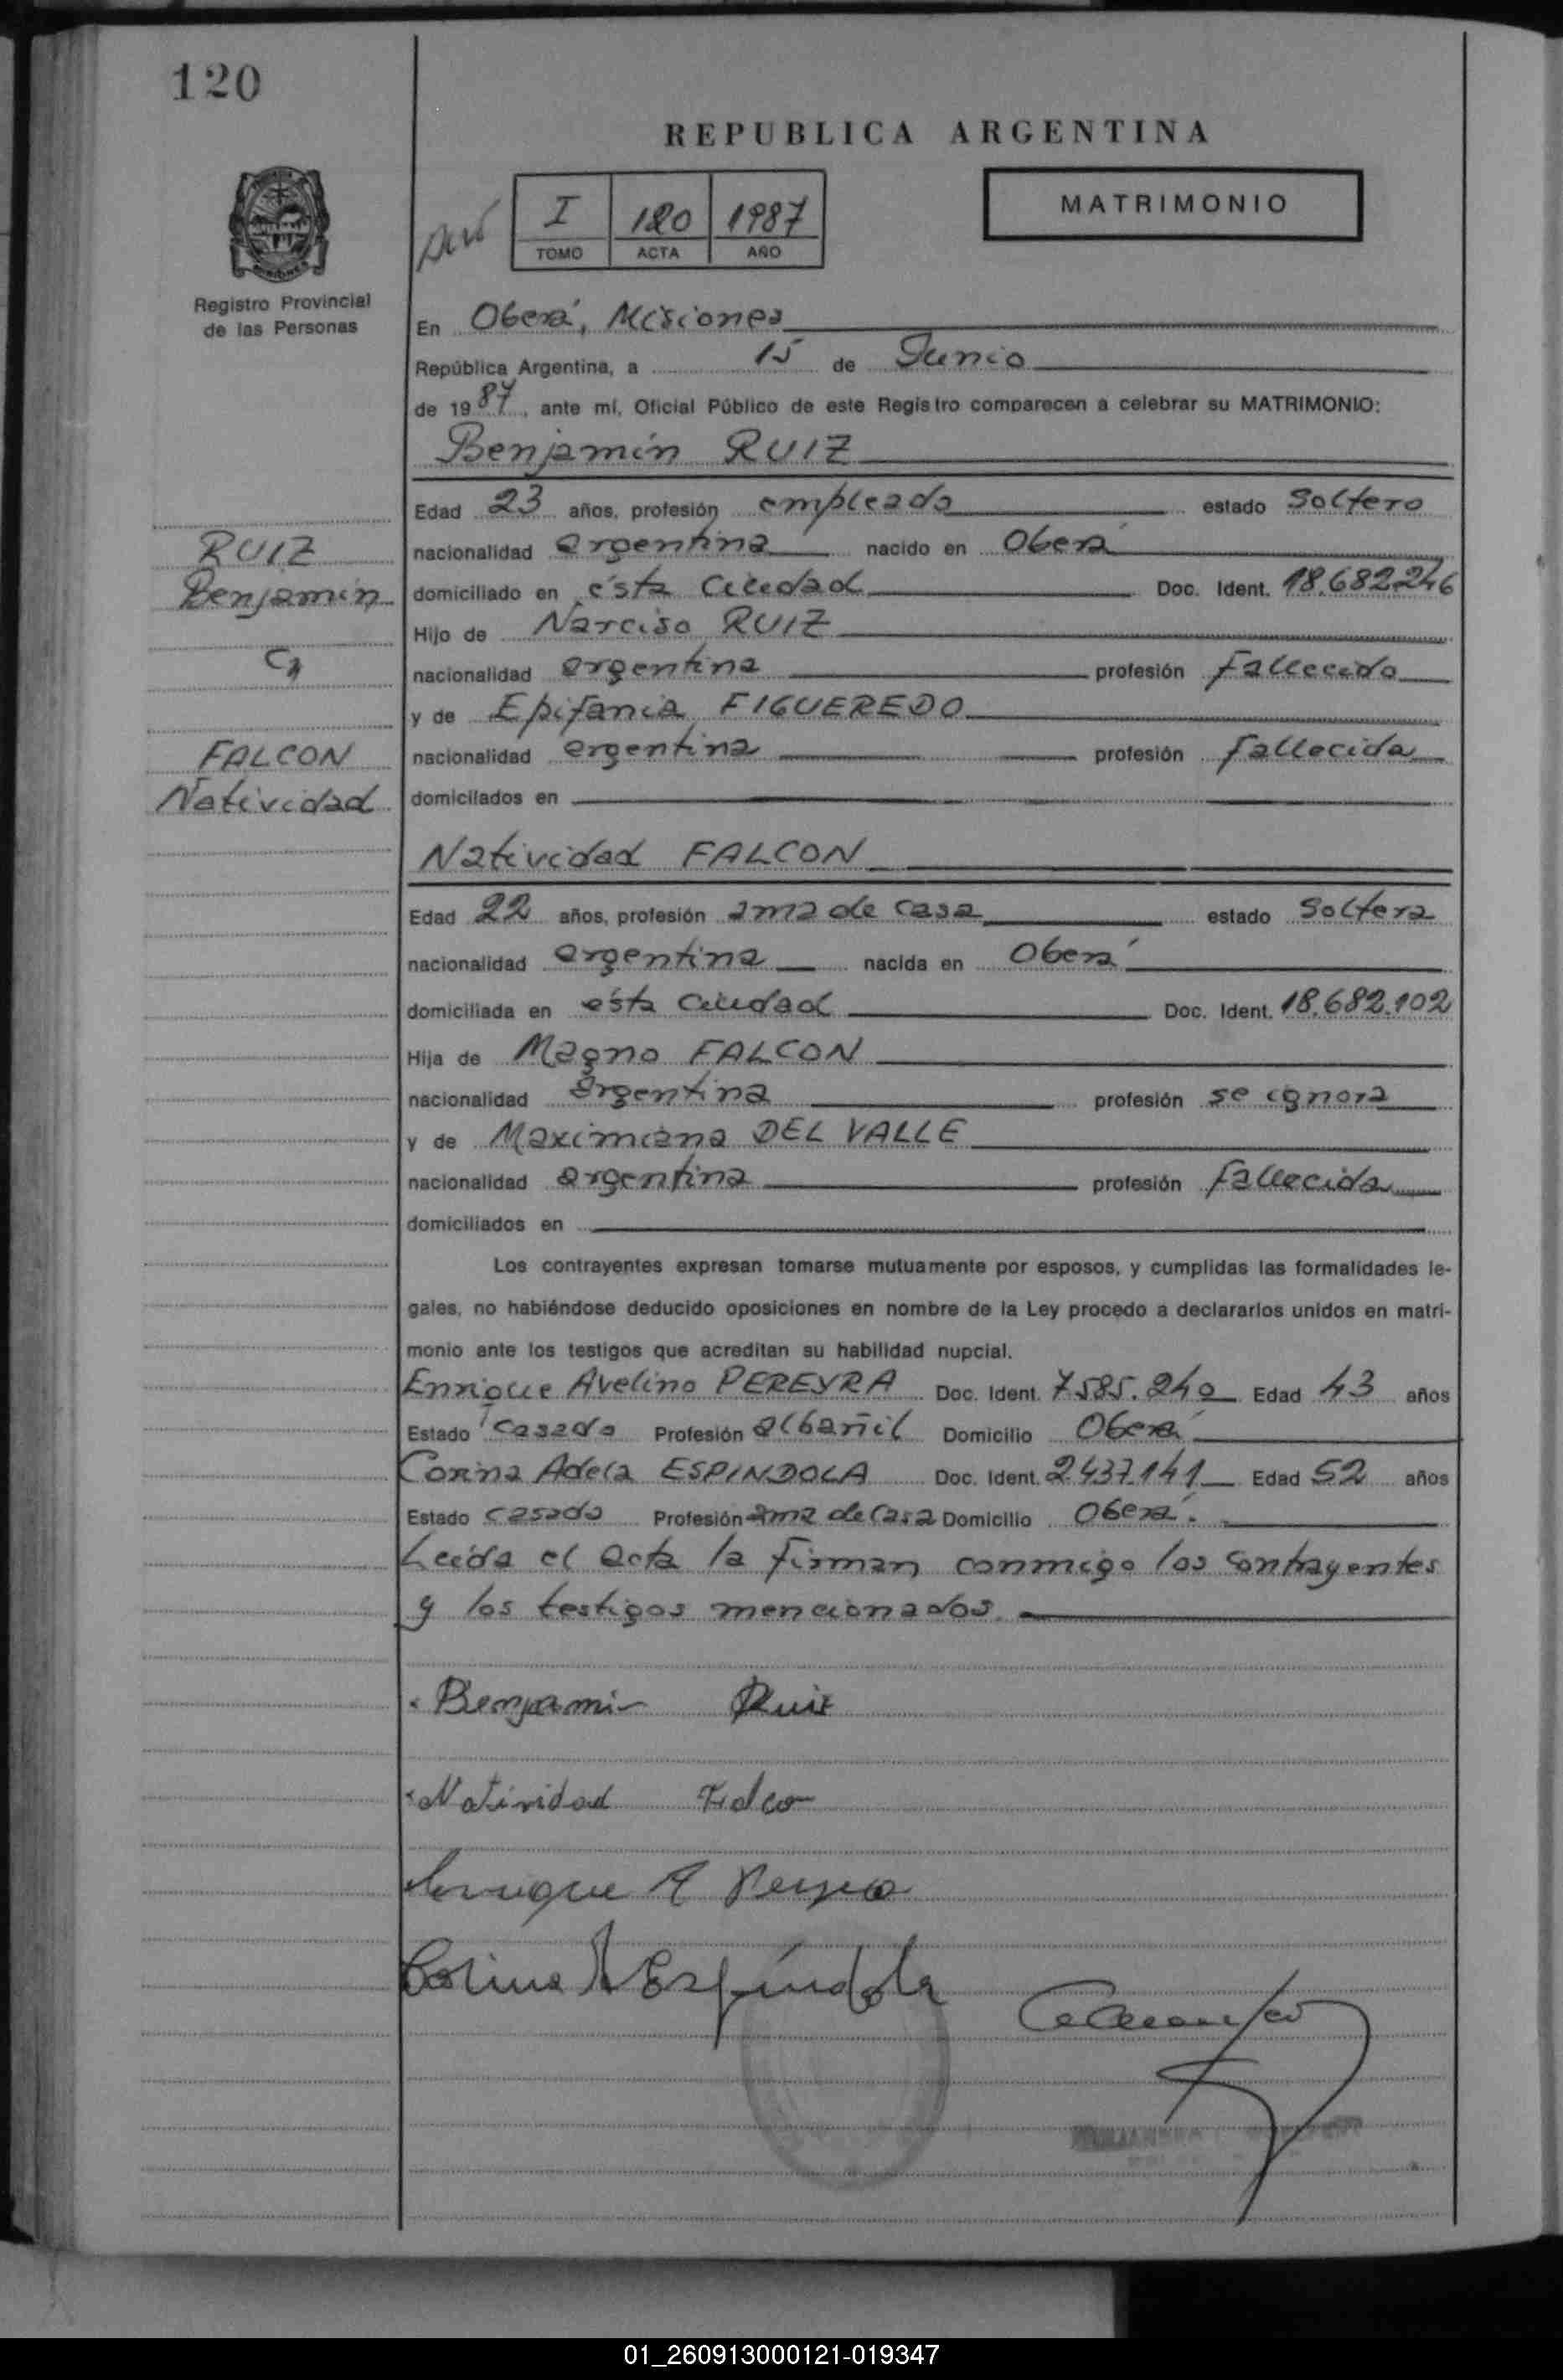 120
REPUBLICA ARGENTINA
I 120 1987
TOMO ACTA AÑO
MATRIMONIO
Registro Provincial
de las Personas
En Oberá, Misiones
República Argentina, a 15 de Junio
de 1987, ante mí, Oficial Público de este Registro comparecen a celebrar su MATRIMONIO:
Benjamín RUIZ
Edad 23 años, profesión empleado estado Soltero
nacionalidad argentina nacido en Oberá
domiciliado en ésta Ciudad Doc. Ident. 18.682.246
Hijo de Narciso RUIZ
nacionalidad argentina profesión Fallecido
y de Epifania FIGUEREDO
nacionalidad argentina profesión Fallecida
domicilados en
RUIZ
Benjamín
FALCON
Natividad
Natividad FALCON
Edad 22 años, profesión ama de casa estado Soltera
nacionalidad argentina nacida en Oberá
domiciliada en ésta Ciudad Doc. Ident. 18.682.102
Hija de Magno FALCON
nacionalidad argentina profesión se ignora
y de Maximiana DEL VALLE
nacionalidad argentina profesión Fallecida
domiciliados en
Los contrayentes expresan tomarse mutuamente por esposos, y cumplidas las formalidades le-
gales, no habiéndose deducido oposiciones en nombre de la Ley procedo a declararlos unidos en matri-
monio ante los testigos que acreditan su habilidad nupcial.
Enrique Avelino PEREYRA Doc. Ident. 7.585.240 Edad 43 años
Estado Casado Profesión albañil Domicilio Oberá
Corina Adela ESPINDOLA Doc. Ident. 2.437.141 Edad 52 años
Estado Casada Profesión ama de Casa Domicilio Oberá.
Leída el acta la firman conmigo los Contrayentes
y los testigos mencionados.
Benjami Ruiz
Natividad Falco
Enrique A Pereyra
Corina A Espíndola
01_260913000121-019347